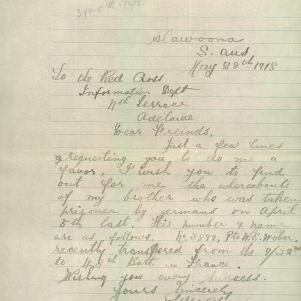 Slawoona
S. Aus
May 28th 1918
To the Red Cross
Information Dept
Nth Terrace
Adelaide
Dear Freinds,
Just a few lines
requesting you to do me a
favor, I wish you to find
out for me the whereabouts
of my brother who was taken
prisoner by germans on April
5th last. His number & name
are as follows. No. 3899, Pte W.E. Weber.
recently transfered from the 9/32nd
to 48th Batt. in France.
Wishing you every success.
Yours Sincerely